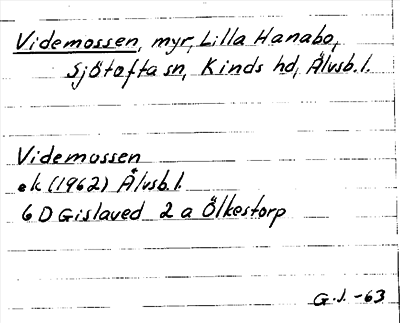 Videmossen, myr, Lilla Hanabo,
Sjötofta sn, Kinds hd, Älvsb. l.
Videmossen
ek (1962) Älvsb. l.
6 D Gislaved 2 a Ölkestorp
G. J. -63